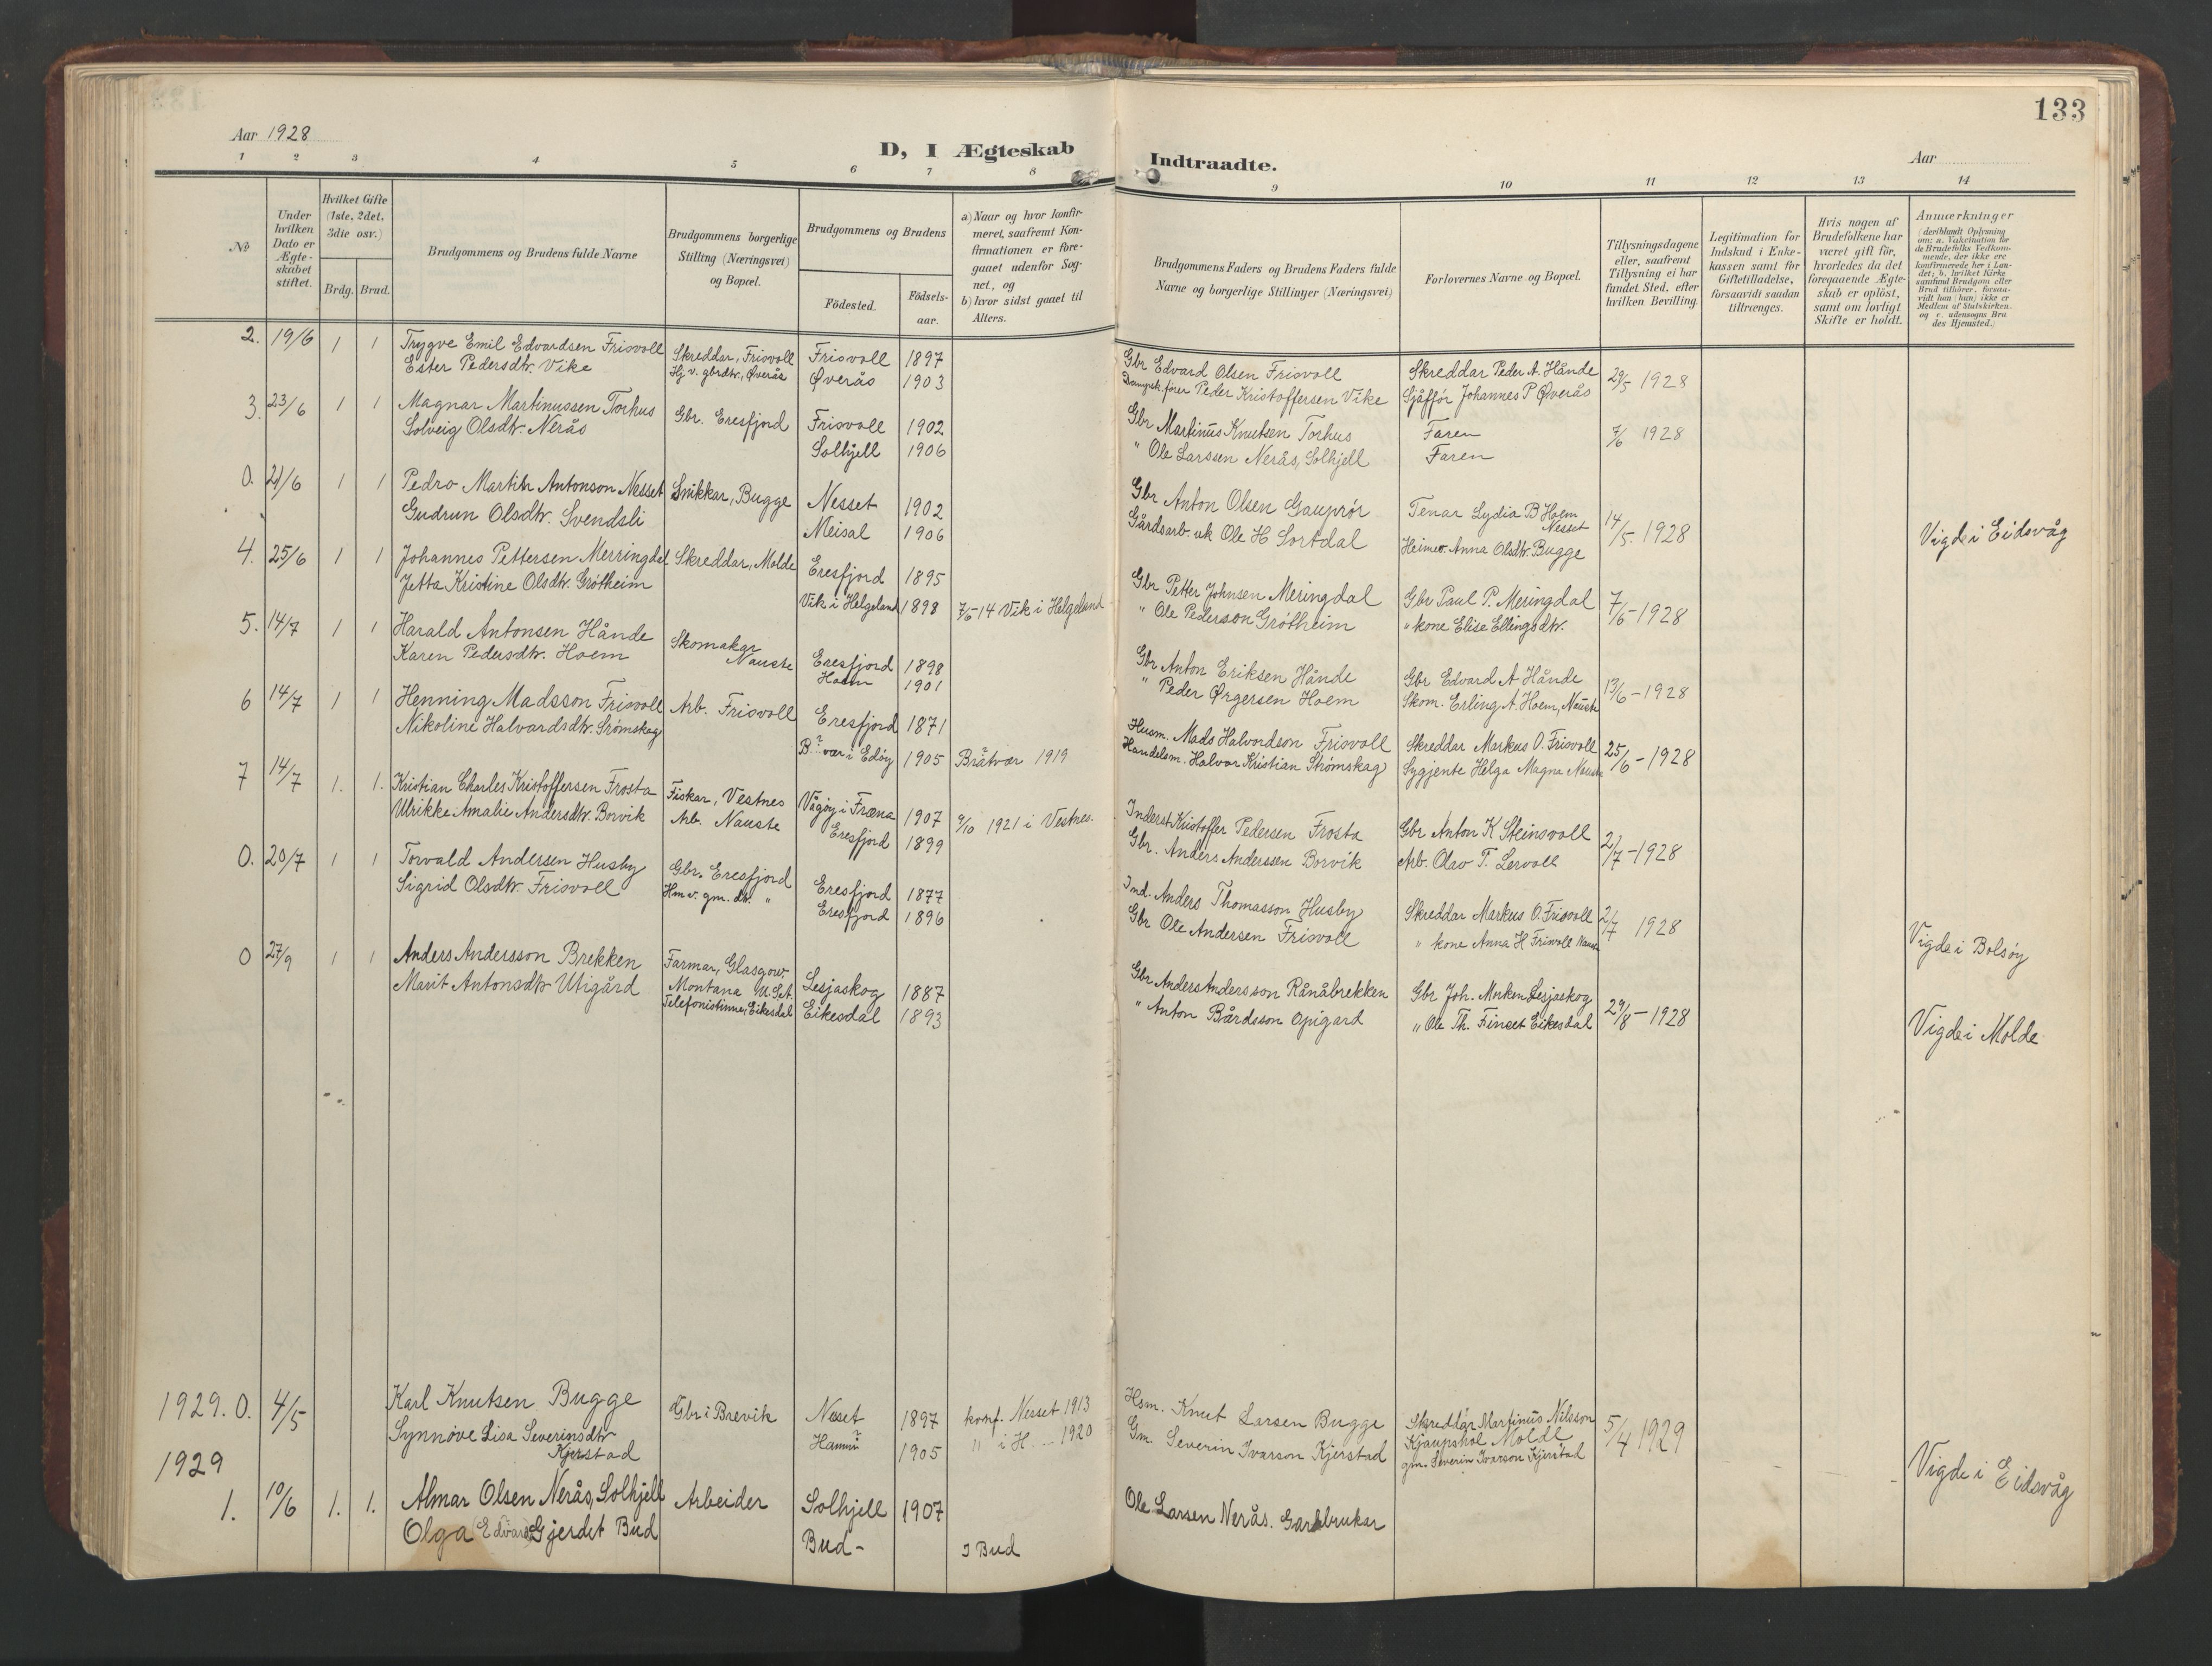 133
Aar 1928
D, I Ægteskab Indtraadte.
Aar
1 2 3 4 5 6 7 8 9 10 11 12 13 14
No
Under hvilken Dato er Ægteskabet stiftet.
Hvilket Gifte (1ste, 2det, 3die osv.)
Brdg. Brud.
Brudgommens og Brudens fulde Navne
Brudgommens borgerlige Stilling (Næringsvei) og Bopæl.
Brudgommens og Brudens
Fødested. Fødselsaar.
a) Naar og hvor konfirmeret, saafremt Konfirmationen er foregaaet udenfor Sognet, og
b) hvor sidst gaaet til Alters.
Brudgommens Faders og Brudens Faders fulde Navne og borgerlige Stillinger (Næringsvei)
Forlovernes Navne og Bopæl.
Tillysningsdagene eller, saafremt Tillysning ei har fundet Sted, efter hvilken Bevilling.
Legitimation for Indskud i Enkekassen samt for Giftetilladelse, forsaavidt saadan tiltrænges.
Hvis nogen af Brudefolkene har været gift før, hvorledes da det foregaaende Ægteskab er opløst, samt om lovligt Skifte er holdt.
Anmærkninger (deriblandt Oplysning om: a. Vakcination for de Brudefolks Vedkommende, der ikke ere konfirmerede her i Landet; b. hvilket Kirkesamfund Brudgom eller Brud tilhører, forsaavidt han (hun) ikke er Medlem af Statskirken, og c. udensogns Brudes Hjemsted.)
2. 19/6 1 1 Trygve Emil Edvardsen Frisvoll Skreddar, Frisvoll Frisvoll 1897 Gbr Edvard Olsen Frisvoll Skreddar Peder A. Hånde 29/5 1928
Ester Pedersdtr. Vike Hj v. gbrdtr., Øverås Øverås 1903 Dampsk.fører Peder Kristoffersen Vike Sjåffór Johannes P Øverås
3. 23/6 1 1 Magnar Martinussen Torhus Gbr. Eresfjord Frisvoll 1902 Gbr Martinus Knutsen Torhus Faren 7/6 1928
Solveig Olsdtr. Nerås Solhjell 1906 " Ole Larssen Nerås, Solhjell Faren
0. 21/6 1 1 Pedro Martin Antonson Nesset Snikkar, Bugge Nesset 1902 Gbr Anton Olsen Gauprór Tenar Lydia B Hoem Nesset 14/5. 1928 Vigde i Eidsvåg
Gudrun Olsdtr. Svendsli Meisal 1906 Gårdsarb. uk Ole H Sortdal Heimev. Anna Olsdtr. Bugge
4. 25/6 1 1 Johannes Pettersen Merringdal Skreddar, Molde Eresfjord 1895 Gbr Petter Johnsen Meringdal Gbr Paul P. Meringdal 7/6-1928
Jetta Kristine Olsdtr. Grótheim Vik i Helgeland 1898 7/6-14 Vik i Helgeland " Ole Pederson Grótheim " kone Elise Ellingsdtr.
5. 14/7 1 1 Harald Antonsen Hånde Skomakar Nauste Eresfjord 1898 Gbr Anton Eriksen Hånde Gbr Edvard A Hånde 13/6-1928
Karen Pedersdtr. Hoem Hoem 1901 " Peder Ørgersen Hoem Skom. Erling A. Hoem, Nauste
6 14/7 1 1 Henning Madsson Frisvoll Arb. Frisvoll Eresfjord 1871 Husm. Mads Halvordson Frisvoll Skreddar Markus O. Frisvoll 25/6-1928
Nikoline Halvardsdtr. Strømskag B vær i Edøy 1905 Bråtvær 1919 Handelsm. Halvor Kristian Strømskag Sygjente Helga Magna Nauste
7 14/7 1. 1. Kristian Charles Kristoffersen Frosta Fiskar, Vestnes Vågøy i Fræna 1907 9/10 1921 i Vestnes. Inderst Kristoffer Pedersen Frosta Gbr Anton K Steinsvoll 2/7-1928
Ulrikke Amalie Andersdtr. Borvik Arb. Nauste Eresfjord 1899 Gbr. Anders Anderssen Borvik Arb. Olav T. Lervoll
0. 20/7 1 1 Torvald Andersen Husby Gbr. Eresfjord Eresfjord 1877 Ind. Anders Thomasson Husby Skreddar Markus O. Frisvoll 2/7 1928 Vigde i Bolsøy
Sigrid Olsdtr. Frisvoll Hm v. gm. dtr. " Eresfjord 1896 Gbr Ole Andersen Frisvoll " kone Anna H Frisvoll Nauste
0 27/9 1 1 Anders Andersson Brekken Farmar, Glasgow Montana U.S.A. Lesjaskog 1887 Gbr Anders Andersson Rånåbrekken Gbr Joh. Morken Lesjaskog 29/8-1928 Vigde i Molde
Marit Antonsdtr Utigård Telefonistinne, Eikesdal Eikesdal 1893 " Anton Bårdsson Opigard " Ole Th. Finset Eikesdal
1929. 0. 4/5 Karl Knutsen Bugge Gbr i Brevik Nesset 1897 konf. Nesset 1913 Hsm. Knut Larsen Bugge Skreddar Martinus Nilsson Kjaupshol Molde 5/4 1929 Vigde i Eidsvåg
Synnóve Lisa Severinsdtr Kjerstad 1905 " i H. - 1920 Gm. Severin Ivarson Kjerstad gm. Severin Ivarson Kjerstad
1929
1. 10/6 1. 1. Almar Olsen Nerås, Solhjell Arbeider Solhjell 1907 Ole Larsen Nerås. Gardbrukar
Olga (Edvard) Gjerdet Bud Bud - I Bud